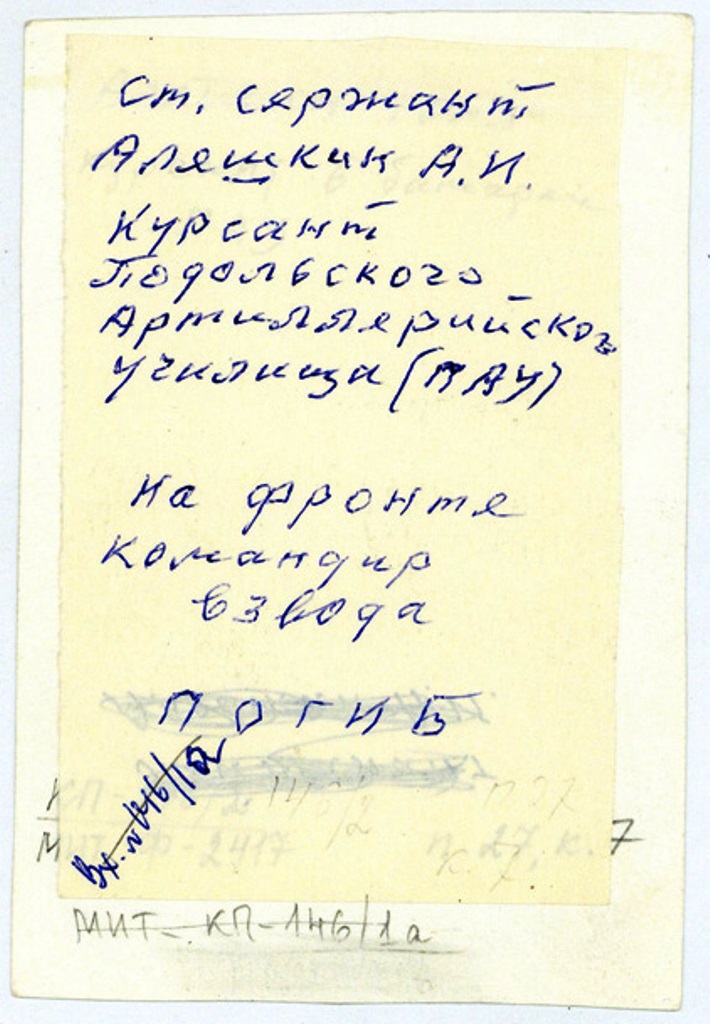 ст. сержант
Аляшкин А.И.
Курсант
Подольского
Артиллерийского
училища (ПАУ)
На фронте
командир
взвода
ПОГИБ
Вх. № 146/1а
КП- 146/2
МИТ Ф-2417 п. 27, к. 7
МИТ-КП-146/1а